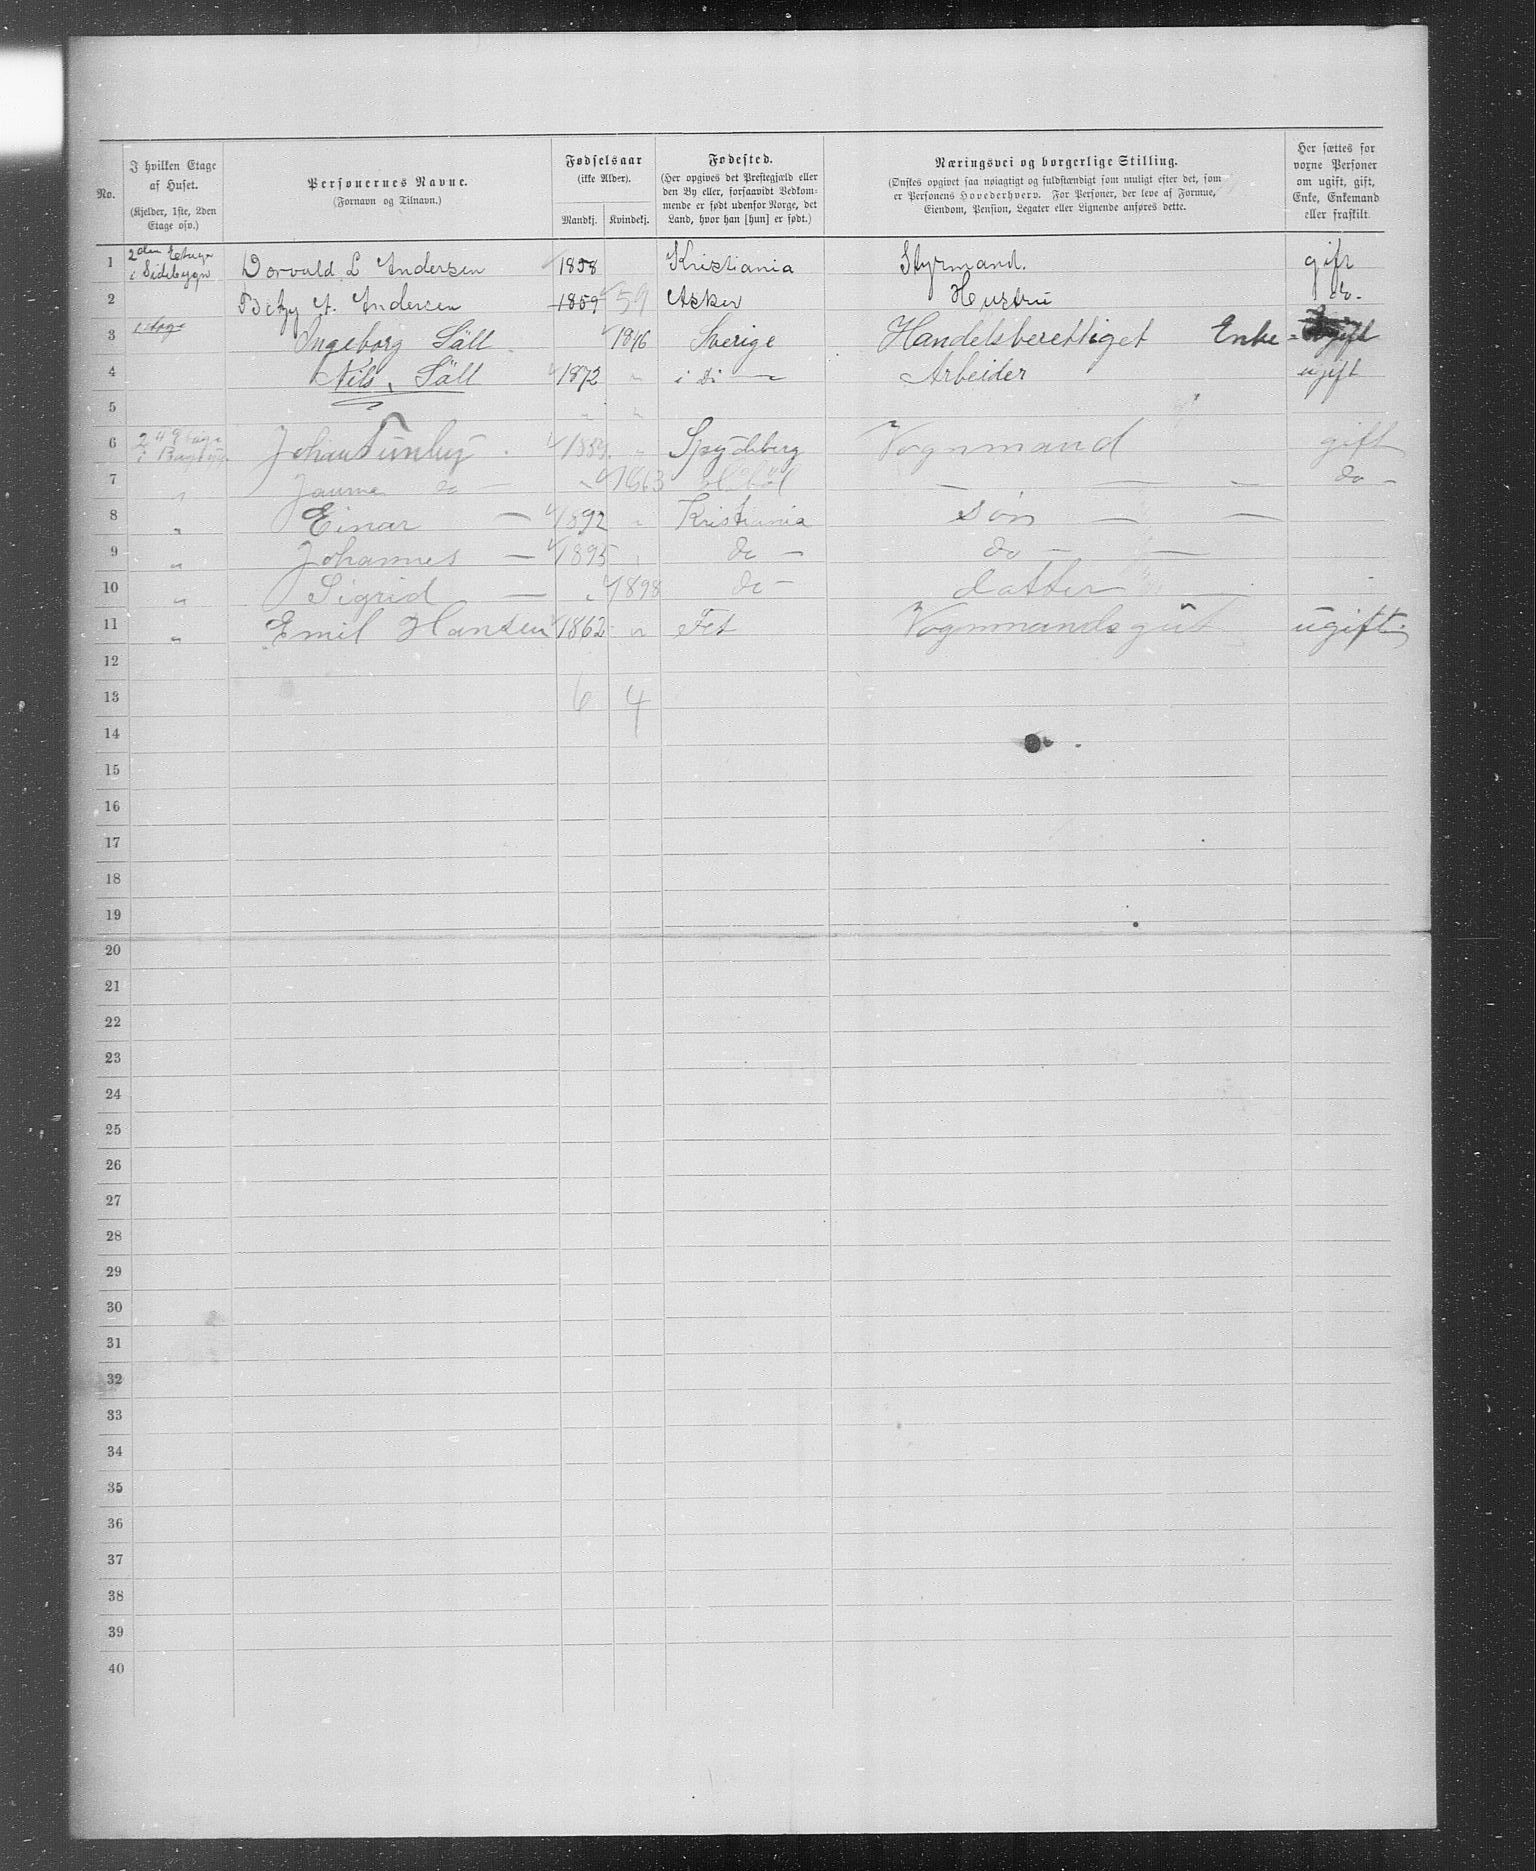 No.
I hvilken Etage af Huset.
(Kjelder, 1ste, 2den Etage osv.)
Personernes Navne.
(Fornavn og Tilnavn.)
Fødselsaar
(ikke Alder).
Mandkj. Kvindekj.
Fødested.
(Her opgives det Prestegjæld eller den By eller, forsaavidt Vedkommende er født udenfor Norge, det Land, hvor han [hun] er født.)
Næringsvei og borgerlige Stilling.
(Ønskes opgivet saa nøiagtigt og fuldstændigt som muligt efter det, som er Personens Hovederhverv. For Personer, der leve af Formue, Eiendom, Pension, Legater eller Lignende anføres dette.
Her sættes for voxne Personer om ugift, gift, Enke, Enkemand eller fraskilt.
1 2den Etage i Sidebygn Dorvald L Andersen 1858 Kristiania Styrmand. gift
2 Andersen 1859 59 Asker Hustru do.
3 Etage Ingeborg Säll 1846 Sverige Handelsberettiget Enke
4 Nils Säll 1872 " i Di — Arbeider ugift
5 " "
6 i Johan 1859 " Spydeberg Vognmand gift
7 " do — " 1863 — — — do —
8 " Einar — 1892 " Kristiania søn — —
9 " Johannes — 1895 " do — do — —
10 " Sigrid — " 1898 do — datter
11 " Emil Hansen 1862 " Fet Vognmandsgut ugift
12
13 6 4
14
15
16
17
18
19
20
21
22
23
24
25
26
27
28
29
30
31
32
33
34
35
36
37
38
39
40